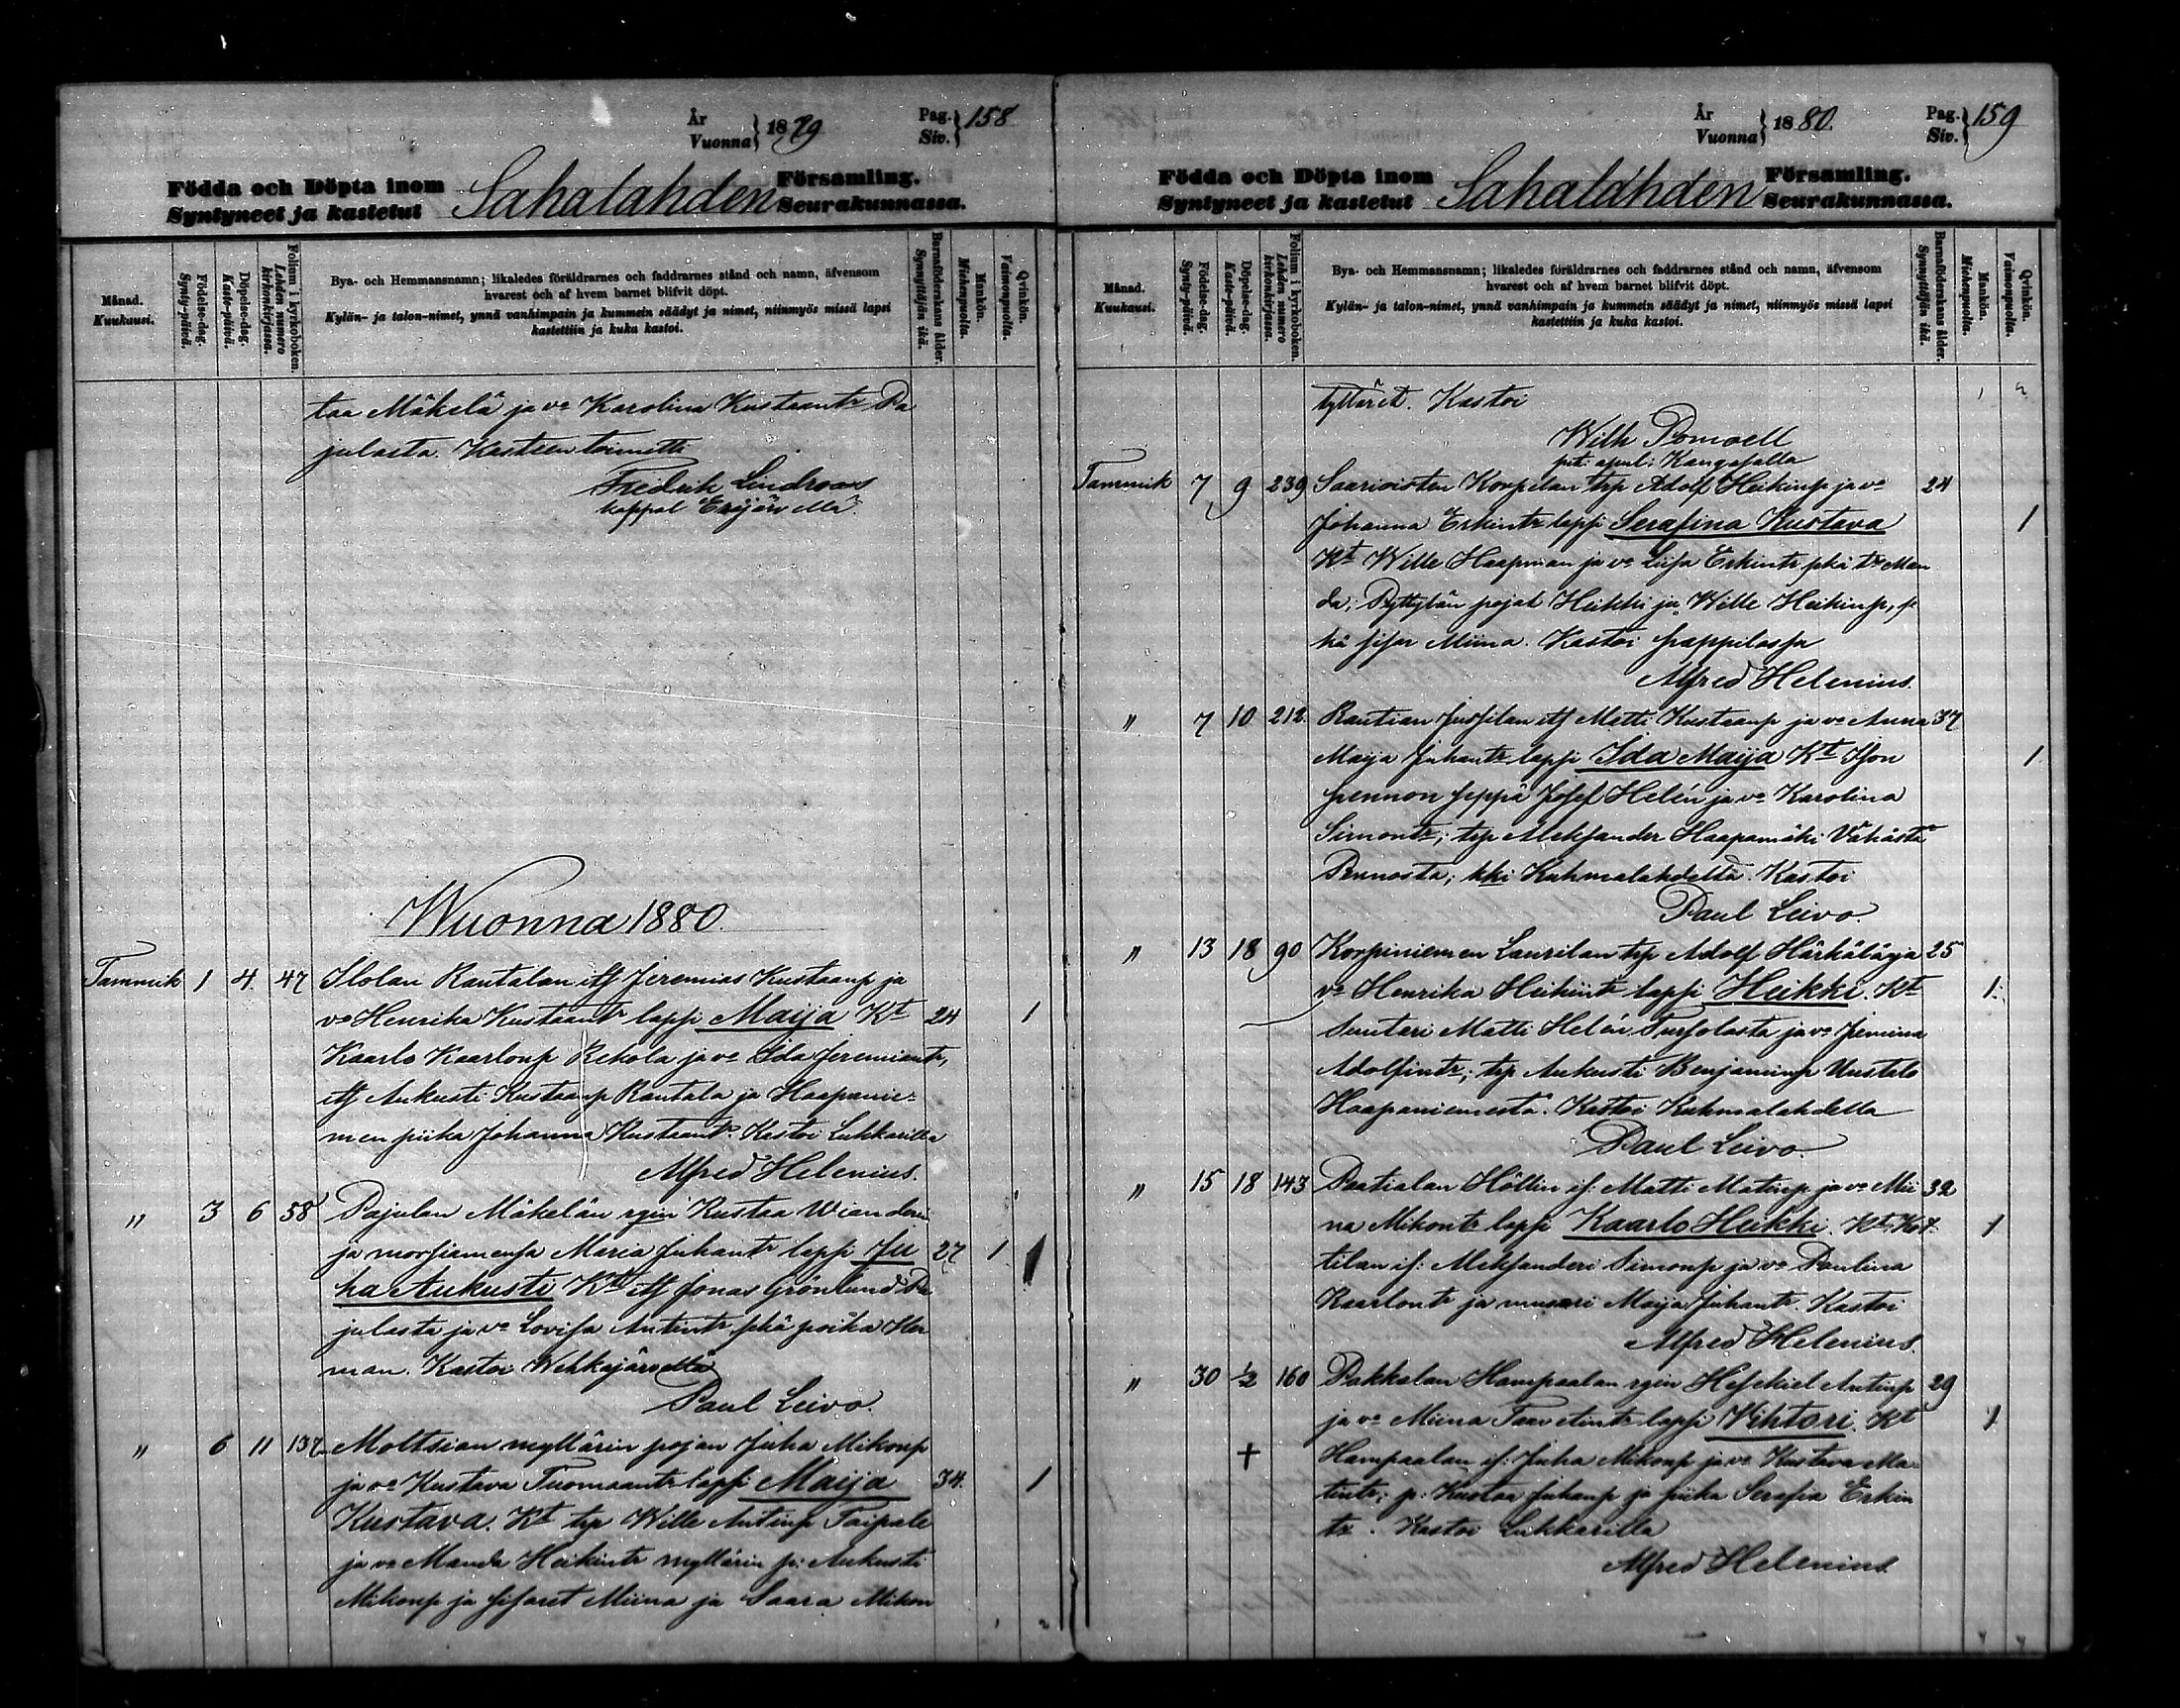 År
Vuonna } 1879
Pag.
Siv. } 158
Födda och Döpta inom
Syntyneet ja kastetut Sahalahden Församling.
Seurakunnassa.
Månad.
Kuukausi.
Födelse-dag.
Synty-päivä.
Döpelse-dag.
Kaste-päivä.
Folium i kyrkoboken.
Lehden numero kirkonkirjassa.
Bya- och Hemmansnamn; likaledes föräldrarnes och faddrarnes stånd och namn, äfvensom
hvarest och af hvem barnet blifvit döpt.
Kylän- ja talon-nimet, ynnä vanhimpain ja kummein säädyt ja nimet, niinmyös missä lapsi
kastettiin ja kuka kastoi.
Barnaföderskans ålder.
Synnyttäjän ikä.
Mankön.
Miehenpuolta.
Qvinkön.
Vaimonpuolta.
taa Mäkelä ja vo Karolina Kustaantr Pa
julasta. Kasteen toimitti
Fredrik Lindroos
kappal Eräjärvellä.
Wuonna 1880.
Tammik 1 4. 47 Ilolan Rantalan itf Jeremias Kustaanp ja
vo Henrika Kustaantr lapsi Maija Kt 24 1
Kaarlo Kaarlonp Rekola ja vo Ida Jeremiantr,
itf Aukusti Kustaanp Rantala ja Haapanie-
men piika Johanna Kustaantr. Kastoi Lukkarilla
Alfred Helenius.
" 3 6 58 Pajulan Mäkelän rgin Kustaa Wianderin
ja morsiamensa Maria Juhantr lapsi Ju 27 1
ha Aukusti Kt itf Jonas Grönlund Pa
julasta ja vo Lovisa Antintr sekä poika Her
man. Kastoi Wehkajärvellä
Paul Leivo.
" 6 11 137 Moltsian myllärin pojan Juha Mikonp
ja vo Kustava Tuomaantr lapsi Maija 34. 1
Kustava. Kt trp Wille Antinp Taipale
ja vo Manda Heikintr myllärin p: Aukusti
Mikonp ja sisaret Miina ja Saara Mikon
År
Vuonna } 1880.
Pag.
Siv. } 159
Födda och Döpta inom
Syntyneet ja kastetut Sahalahden Församling.
Seurakunnassa.
Månad.
Kuukausi.
Födelse-dag.
Synty-päivä.
Döpelse-dag.
Kaste-päivä.
Folium i kyrkoboken.
Lehden numero kirkonkirjassa.
Bya- och Hemmansnamn; likaledes föräldrarnes och faddrarnes stånd och namn, äfvensom
hvarest och af hvem barnet blifvit döpt.
Kylän- ja talon-nimet, ynnä vanhimpain ja kummein säädyt ja nimet, niinmyös missä lapsi
kastettiin ja kuka kastoi.
Barnaföderskans ålder.
Synnyttäjän ikä.
Mankön.
Miehenpuolta.
Qvinkön.
Vaimonpuolta.
tyttäret. Kastoi
Wilh Pomoell
pit: apul: Kangasalla
Tammik 7 9 239 Saarioisten Korpelan trp Adolf Heikinp ja vo 24
Johanna Erkintr lapsi Serafina Kustava 1
Kt Wille Haapman ja vo Liisa Erkintr sekä tr Man
da; Pyttylän pojat Heikki ja Wille Heikinp, se
kä sisar Miina. Kastoi Pappilassa
Alfred Helenius.
" 7 10 212 Rautian Jussilan itf Matti Kustaanp ja vo Anna 37
Maija Juhantr lapsi Ida Maija Kt Ison
pennon seppä Josef Helén ja vo Karolina 1
Simontr; trp Aleksander Haapamäki Vähästä
Pennosta; kki Kuhmalahdella. Kastoi
Paul Leivo.
" 13 18 90 Korpiniemen Laurilan trp Adolf Härkälä ja 25
vo Henrika Heikintr lapsi Heikki. Kt 1
Suutari Matti Helén Tursolasta ja vo Jemina
Adolfintr; trp Aukusti Benjaminp Uustalo
Haapaniemestä. Kastoi Kuhmalahdella
Paul Leivo.
" 15 18 143 Paatialan Höltin if: Matti Matinp ja vo Mii 32
na Mikontr lapsi Kaarlo Heikki. Kt Kot 1
tilan if: Aleksanderi Simonp ja vo Paulina
Kaarlontr ja muuari Maija Juhantr. Kastoi
Alfred Helenius.
" 30 1/2 160 Pakkalan Hampaalan rgin Hesekiel Antinp 29
ja vo Miina Taavetintr lapsi Vihtori. Kt 1
+ Hampaalan if: Juha Mikonp ja vo Kustava Ma-
tintr; p: Kustaa Juhanp ja piika Serafia Erkin
tr. Kastoi Lukkarilla
Alfred Helenius.